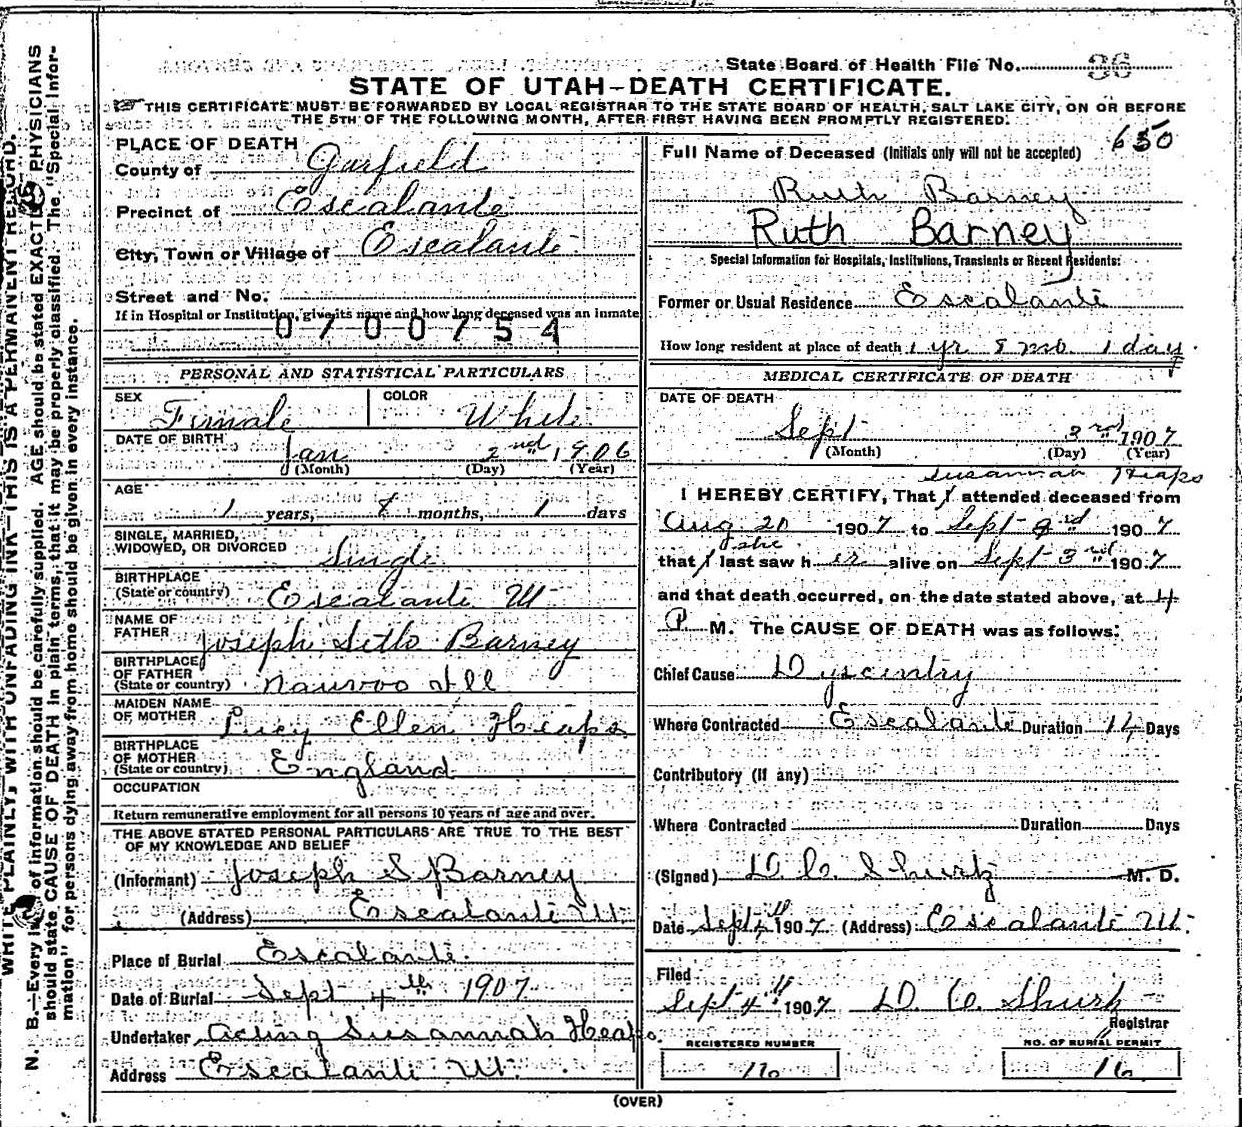 WRITE PLAINLY, WITH UNFADING INK—THIS IS A PERMANENT RECORD.
N. B.—Every item of information should be carefully supplied. AGE should be stated EXACTLY. PHYSICIANS
should state CAUSE OF DEATH in plain terms, that it may be properly classified. The "Special Infor-
mation" for persons dying away from home should be given in every instance.
State Board of Health File No. 36
STATE OF UTAH—DEATH CERTIFICATE.
THIS CERTIFICATE MUST BE FORWARDED BY LOCAL REGISTRAR TO THE STATE BOARD OF HEALTH, SALT LAKE CITY, ON OR BEFORE
THE 5TH OF THE FOLLOWING MONTH, AFTER FIRST HAVING BEEN PROMPTLY REGISTERED.
PLACE OF DEATH
County of Garfield
Precinct of Escalante
City, Town or Village of Escalante
Street and No.
If in Hospital or Institution, give its name and how long deceased was an inmate
0700754
PERSONAL AND STATISTICAL PARTICULARS
SEX Female COLOR White
DATE OF BIRTH Jan 2nd 1906
(Month) (Day) (Year)
AGE
1 years, 8 months, 1 days
SINGLE, MARRIED,
WIDOWED, OR DIVORCED Single
BIRTHPLACE
(State or country) Escalante Ut
NAME OF
FATHER Joseph Seth Barney
BIRTHPLACE
OF FATHER
(State or country) Nauvoo Ill
MAIDEN NAME
OF MOTHER Lucy Ellen Heaps
BIRTHPLACE
OF MOTHER
(State or country) England
OCCUPATION
Return remunerative employment for all persons 10 years of age and over.
THE ABOVE STATED PERSONAL PARTICULARS ARE TRUE TO THE BEST
OF MY KNOWLEDGE AND BELIEF
(Informant) Joseph S Barney
(Address) Escalante Ut.
Place of Burial Escalante.
Date of Burial Sept 4th 1907
Undertaker Acting Susannah Heaps.
Address Escalante Ut.
650
Full Name of Deceased (Initials only will not be accepted)
Ruth Barney
Ruth Barney
Special Information for Hospitals, Institutions, Transients or Recent Residents:
Former or Usual Residence Escalante
How long resident at place of death 1 yr 8 mo. 1 day.
MEDICAL CERTIFICATE OF DEATH
DATE OF DEATH
Sept 3rd 1907
(Month) (Day) (Year)
Susannah Heaps
I HEREBY CERTIFY, That I attended deceased from
Aug 20 1907 to Sept 3rd 1907
she
that I last saw her alive on Sept 3rd 1907
and that death occurred, on the date stated above, at 4
P. M. The CAUSE OF DEATH was as follows:
Chief Cause Dyscentry
Where Contracted Escalante Duration 14 Days
Contributory (If any)
Where Contracted Duration Days
(Signed) D C Shurtz M. D.
Date Sept 4th 1907. (Address) Escalante Ut.
Filed
Sept 4th 1907 D. C. Shurtz
Registrar
REGISTERED NUMBER
16
NO. OF BURIAL PERMIT
16
(OVER)